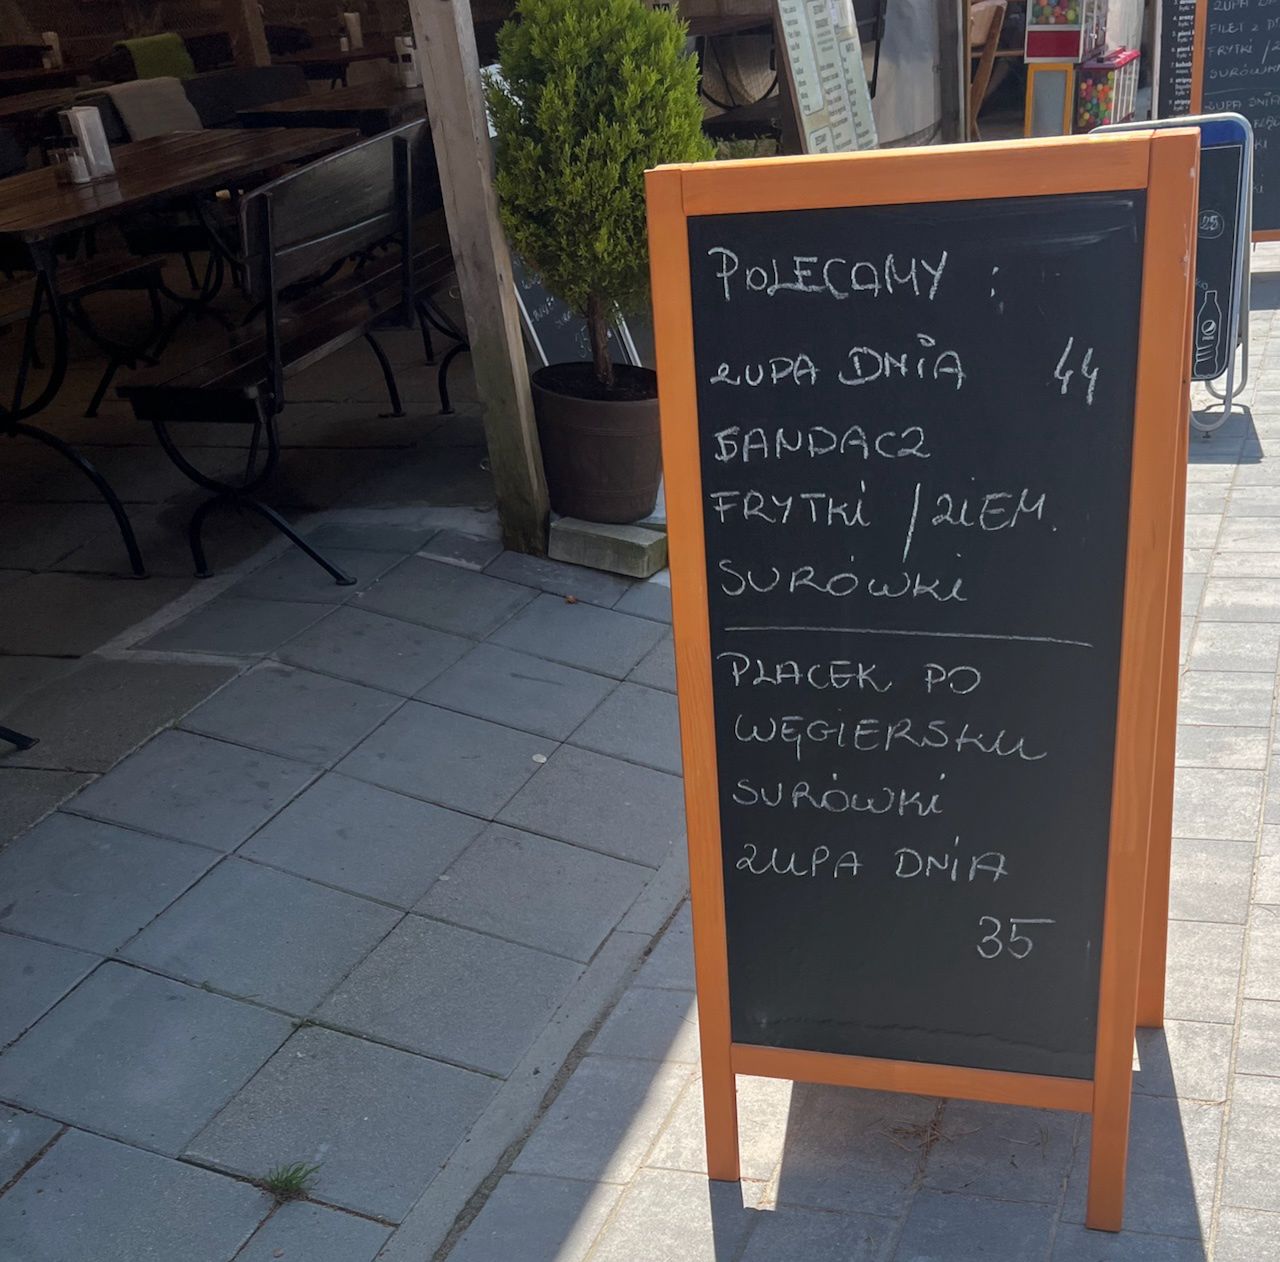 POLECAMY :
ZUPA DNIA 44
SANDACZ
FRYTKI / ZIEM.
SURÓWKI
PLACEK PO
WĘGIERSKU
SURÓWKI
ZUPA DNIA
35
FRYTKI /
SURÓWKI
ZUPA DNIA
25